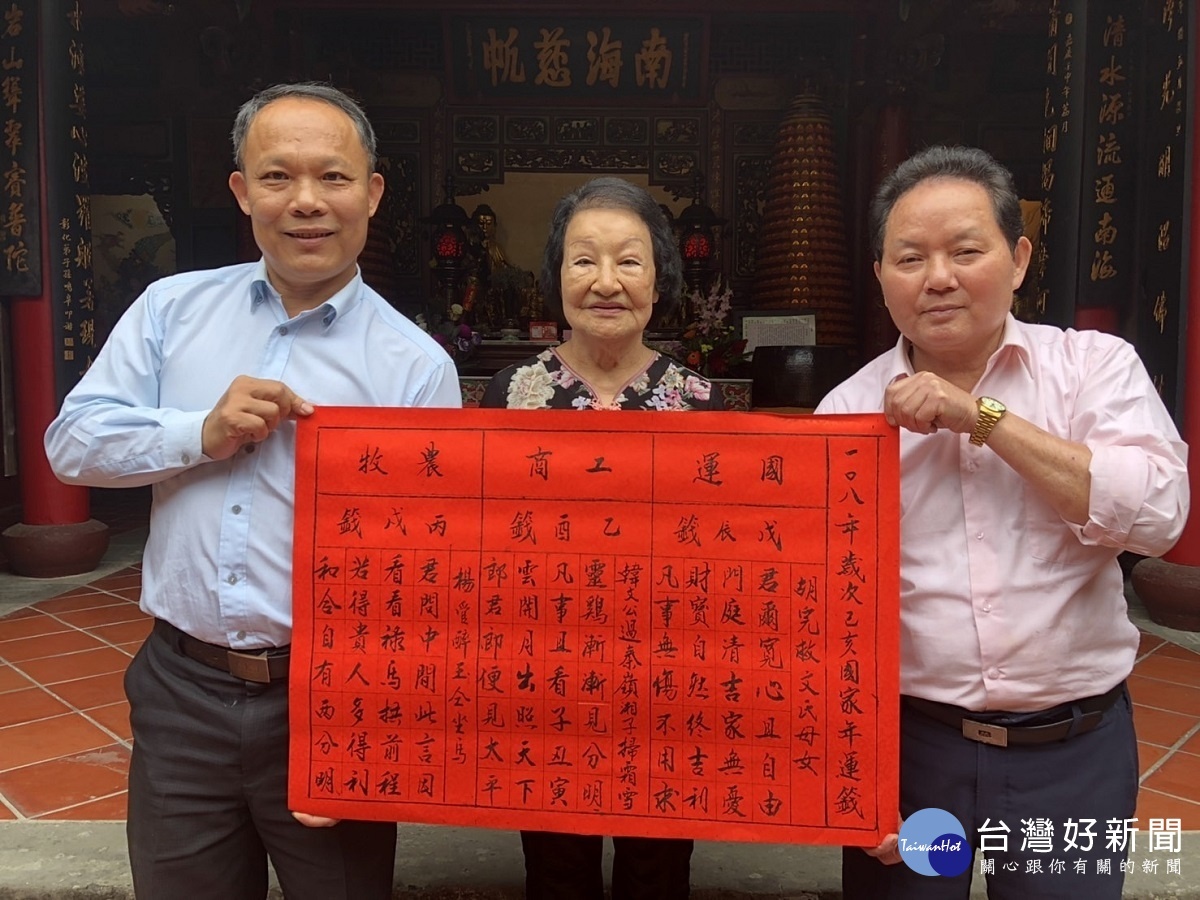 南海慈航
清水源流通南海
岩山聳翠賽普陀
一〇八年歲次己亥國家年運籤
國運
戊辰籤
胡完救文氏母女
君爾寬心且自由
門庭清吉家無憂
財寶自然終吉利
凡事無傷不用求
工商
乙酉籤
韓文公過秦嶺湘子掃霜雪
靈鷄漸漸見分明
凡事且看子丑寅
雲開月出照天下
郎君即便見太平
農牧
丙戌籤
楊管醉玉仝坐馬
君問中間此言因
看看祿馬拱前程
若得貴人多得利
和合自有兩分明
TaiwanHot
台灣好新聞
關心跟你有關的新聞